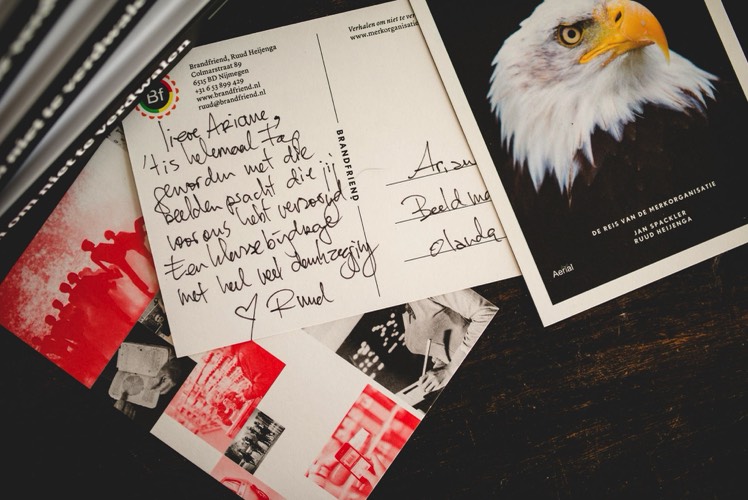 Brandfriend, Ruud Heijenga
Colmarstraat 89
6515 BD Nijmegen
+31 6 53 899 429
www.brandfriend.nl
ruud@brandfriend.nl
Bf
lieve Ariane,
't is helemaal
geworden met die
beelden pracht die jij
voor ons hebt verzorgd
Een klasse bijdrage
met heel veel dankzegging
♡ Ruud
BRANDFRIEND
Verhalen om niet te
www.merkorganisatie
Arian
Beeld
olanda
DE REIS VAN DE MERKORGANISATIE
JAN SPACKLER
RUUD HEIJENGA
Aerial
om niet te verdwalen